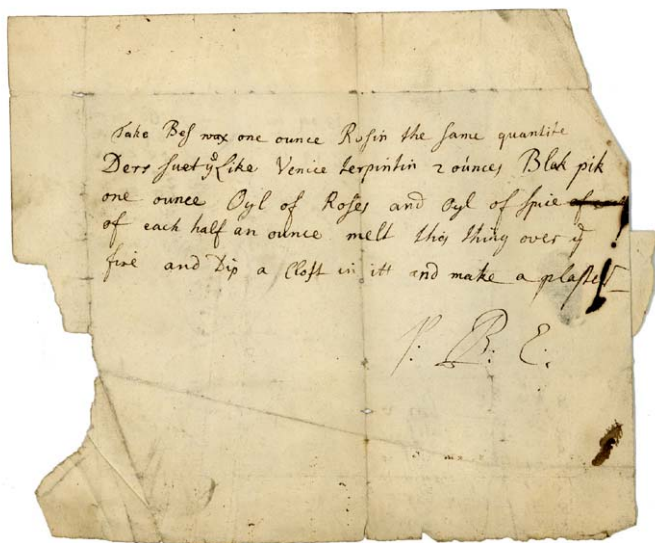 Take Bes wax one ounce Rosin the same quantite
Ders suet ye Like Venice terpintin 2 ounces Blak pik
one ounce Oyl of Roses and oyl of spice
of each half an ounce melt this thing over ye
fire and Dip a Cloft in itt and make a plaster
P: B: E: